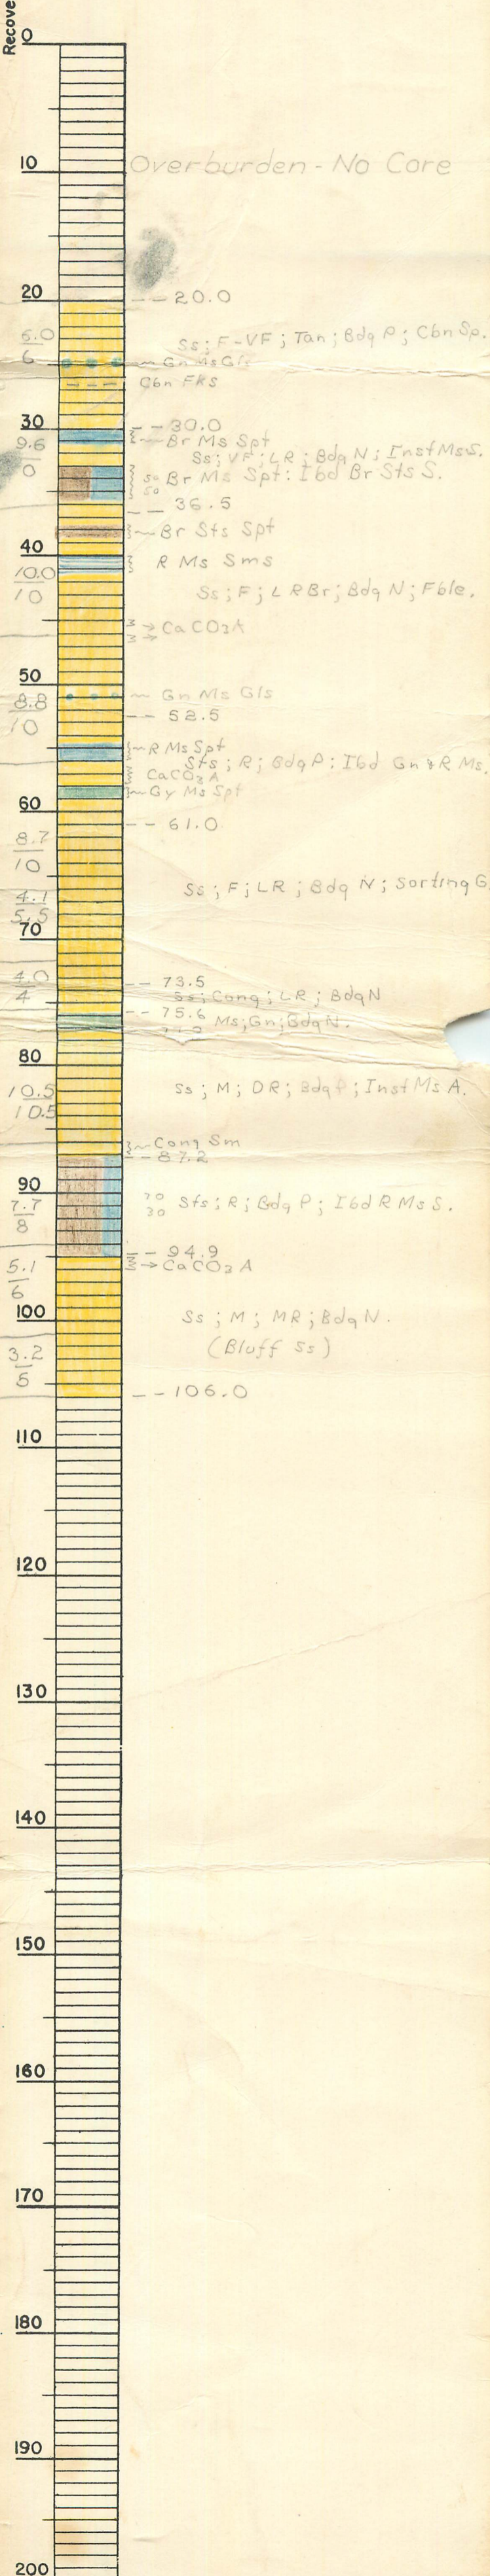 Recove
0
10
Overburden - No Core
20
-- 20.0
Ss; F-VF; Tan; Bdg P; Cbn Sp.
5.0
6
Gn Ms Gls
Cbn Fks
30
-- 30.0
Br Ms Spt
9.6
Ss; VF; LR; Bdg N; Inst Ms S.
0
50 Br Ms Spt: Ibd Br Sts S.
50
-- 36.5
Br Sts Spt
40
R Ms Sms
10.0
10
Ss; F; LRBr; Bdg N; Fble.
→ CaCO3A
→
50
Gn Ms Gls
8.8
10
-- 52.5
R Ms Spt
Sts; R; Bdg P; Ibd Gn & R Ms.
CaCO3A
Gy Ms Spt
60
-- 61.0
8.7
10
Ss; F; LR; Bdg N; Sorting G
4.1
5.5
70
4.0
4
-- 73.5
Ss; Cong; LR; BdgN
-- 75.6
Ms; Gn; BdgN.
80
10.5
10.5
Ss; M; DR; Bdg; Inst Ms A.
Cong Sm
-- 87.2
90
7.7
8
70
30
Sts; R; Bdg P; Ibd R Ms S.
-- 94.9
→ CaCO3A
5.1
6
100
Ss; M; MR; BdgN.
(Bluff Ss)
3.2
5
-- 106.0
110
120
130
140
150
160
170
180
190
200